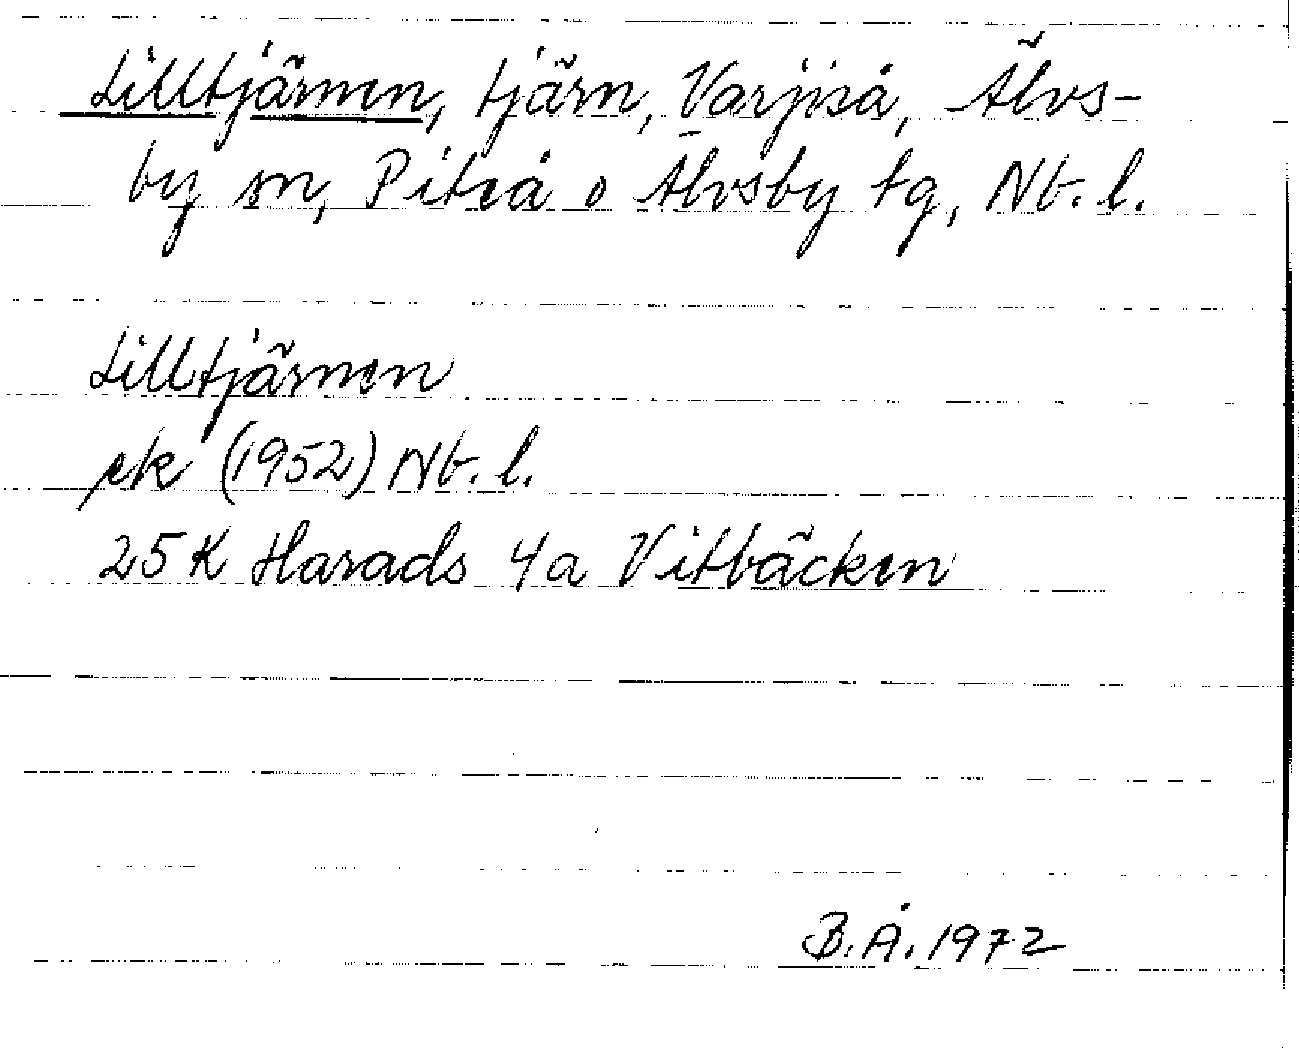 Lilltjärnen, tjärn, Varjiså, Älvs-
by sn, Piteå o Älvsby tg, Nb. l.
Lilltjärnen
ek (1952) Nb. l.
25K Harads 4a Vitbäcken
B.Å. 1972